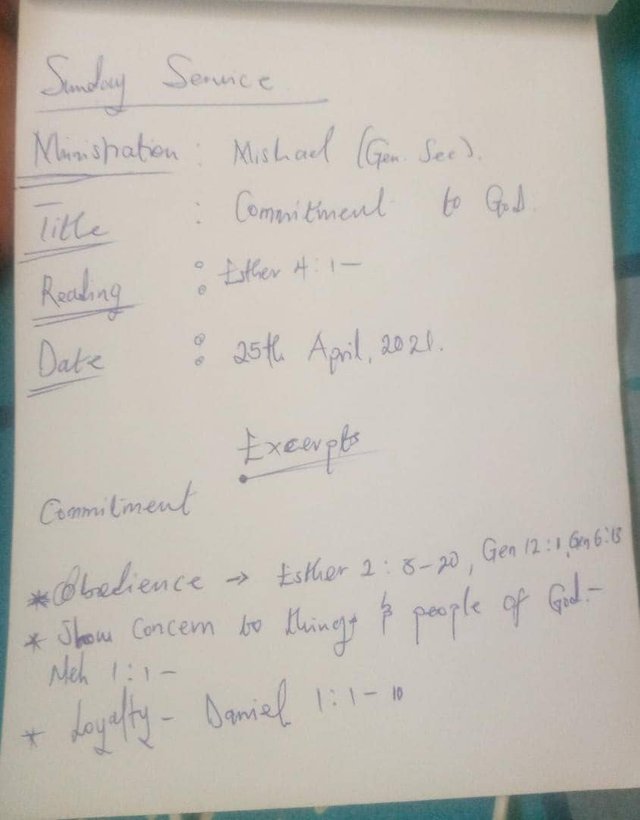 Sunday Service
Ministration : Mishael (Gen. Sec).
Title : Commitment to God.
Reading : Esther 4:1—
Date : 25th April, 2021.
Excerpts
Commitment
* Obedience → Esther 2:8-20, Gen 12:1, Gen 6:13
* Show Concern to things & people of God.-
Neh 1:1-
* Loyalty - Daniel 1:1-10